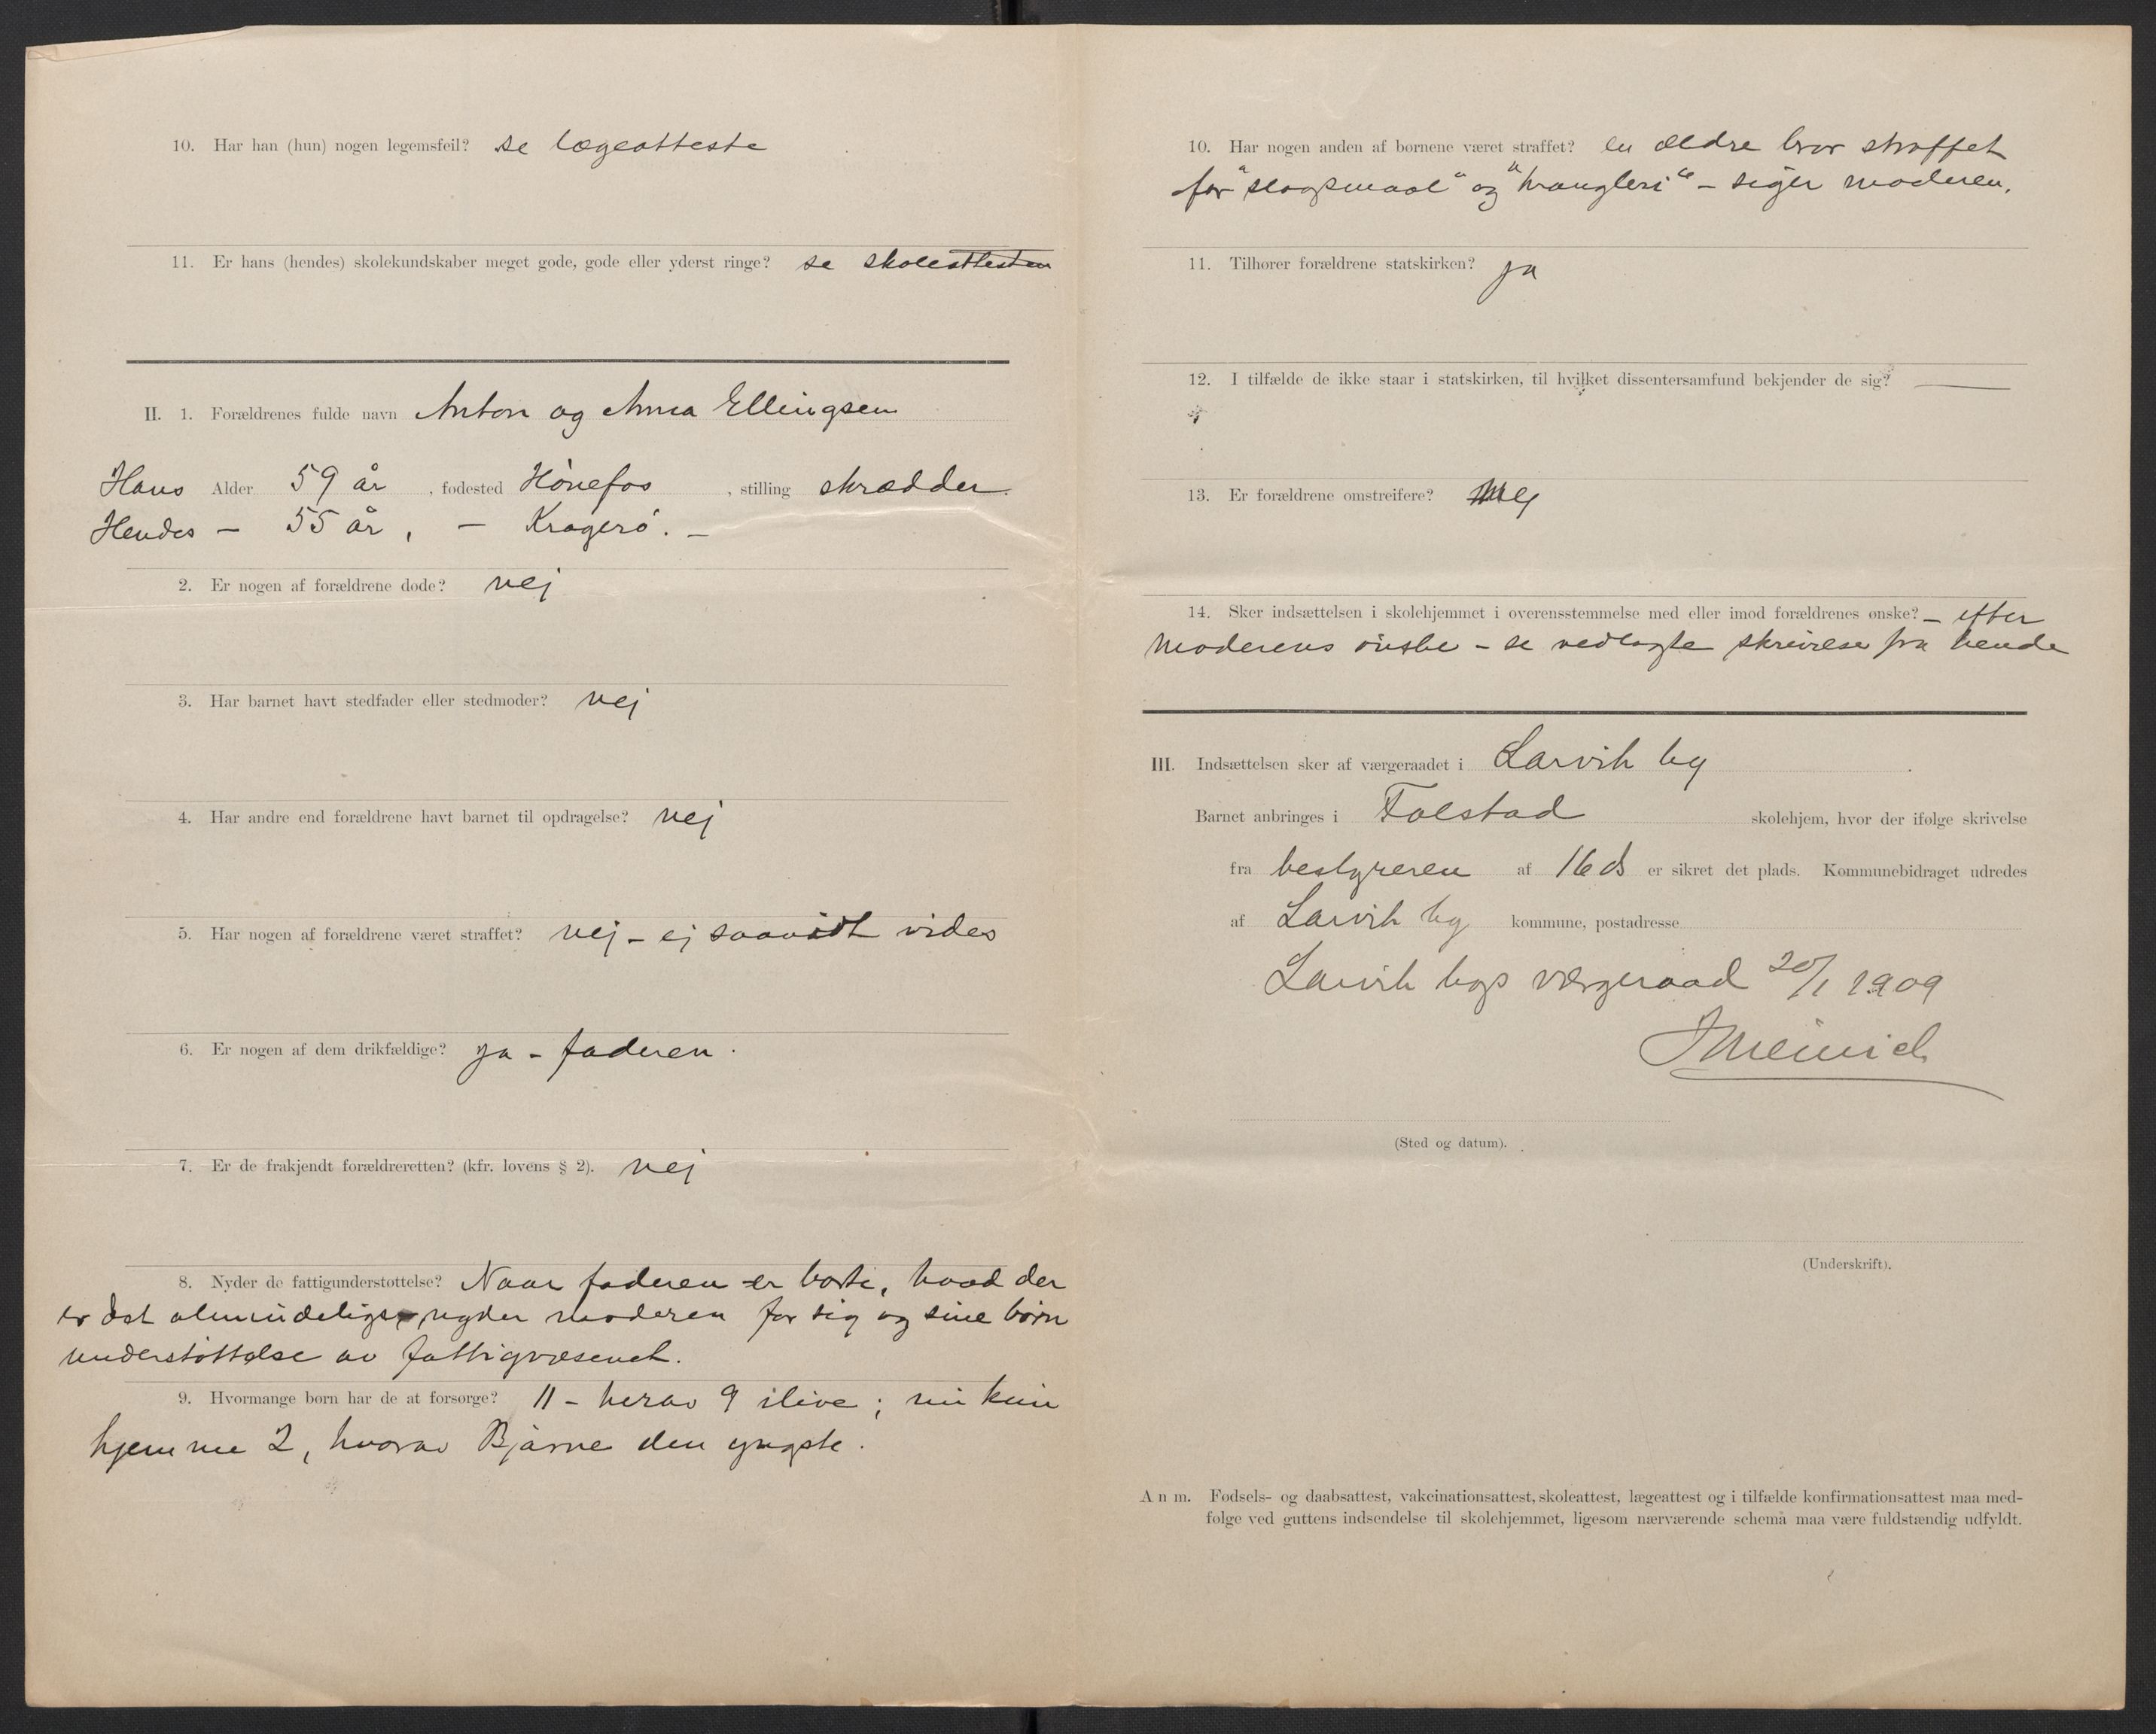 10. Har han (hun) nogen legemsfeil? se lægeatteste
11. Er hans (hendes) skolekundskaber meget gode, gode eller yderst ringe? se skoleattesten
II. 1. Forældrenes fulde navn Anton og Anna Ellingsen
Hans Alder 59 år, fødested Hönefos, stilling skrædder.
Hendes — 55 år, — Kragerö. —
2. Er nogen af forældrene døde? nej
3. Har barnet havt stedfader eller stedmoder? nej
4. Har andre end forældrene havt barnet til opdragelse? nej
5. Har nogen af forældrene været straffet? nej - ej saavidt vides
6. Er nogen af dem drikfældige? ja - faderen.
7. Er de frakjendt forældreretten? (kfr. lovens § 2). nej
8. Nyder de fattigunderstøttelse? Naar faderen er borte, hvad der
er det almindelige, nyder moderen for sig og sine börn
understöttelse av fattigvæsenet.
9. Hvormange børn har de at forsørge? 11 - herav 9 ilive; nu kun
hjemme 2, hvorav Bjarne den yngste.
10. Har nogen anden af børnene været straffet? en ældre bror straffet
for "slagsmaal" og "krangleri" - siger moderen.
11. Tilhører forældrene statskirken? ja
12. I tilfælde de ikke staar i statskirken, til hvilket dissentersamfund bekjender de sig? —
13. Er forældrene omstreifere? nej
14. Sker indsættelsen i skolehjemmet i overensstemmelse med eller imod forældrenes ønske? - efter
moderens önske - se vedlagte skrivelse fra hende
III. Indsættelsen sker af værgeraadet i Larvik by
Barnet anbringes i Falstad skolehjem, hvor der ifølge skrivelse
fra bestyreren af 16 ds er sikret det plads. Kommunebidraget udredes
af Larvik by kommune, postadresse
Larvik bys værgeraad 20/1 1909
(Sted og datum).
(Underskrift).
Anm. Fødsels- og daabsattest, vakcinationsattest, skoleattest, lægeattest og i tilfælde konfirmationsattest maa med-
følge ved guttens indsendelse til skolehjemmet, ligesom nærværende schema maa være fuldstændig udfyldt.